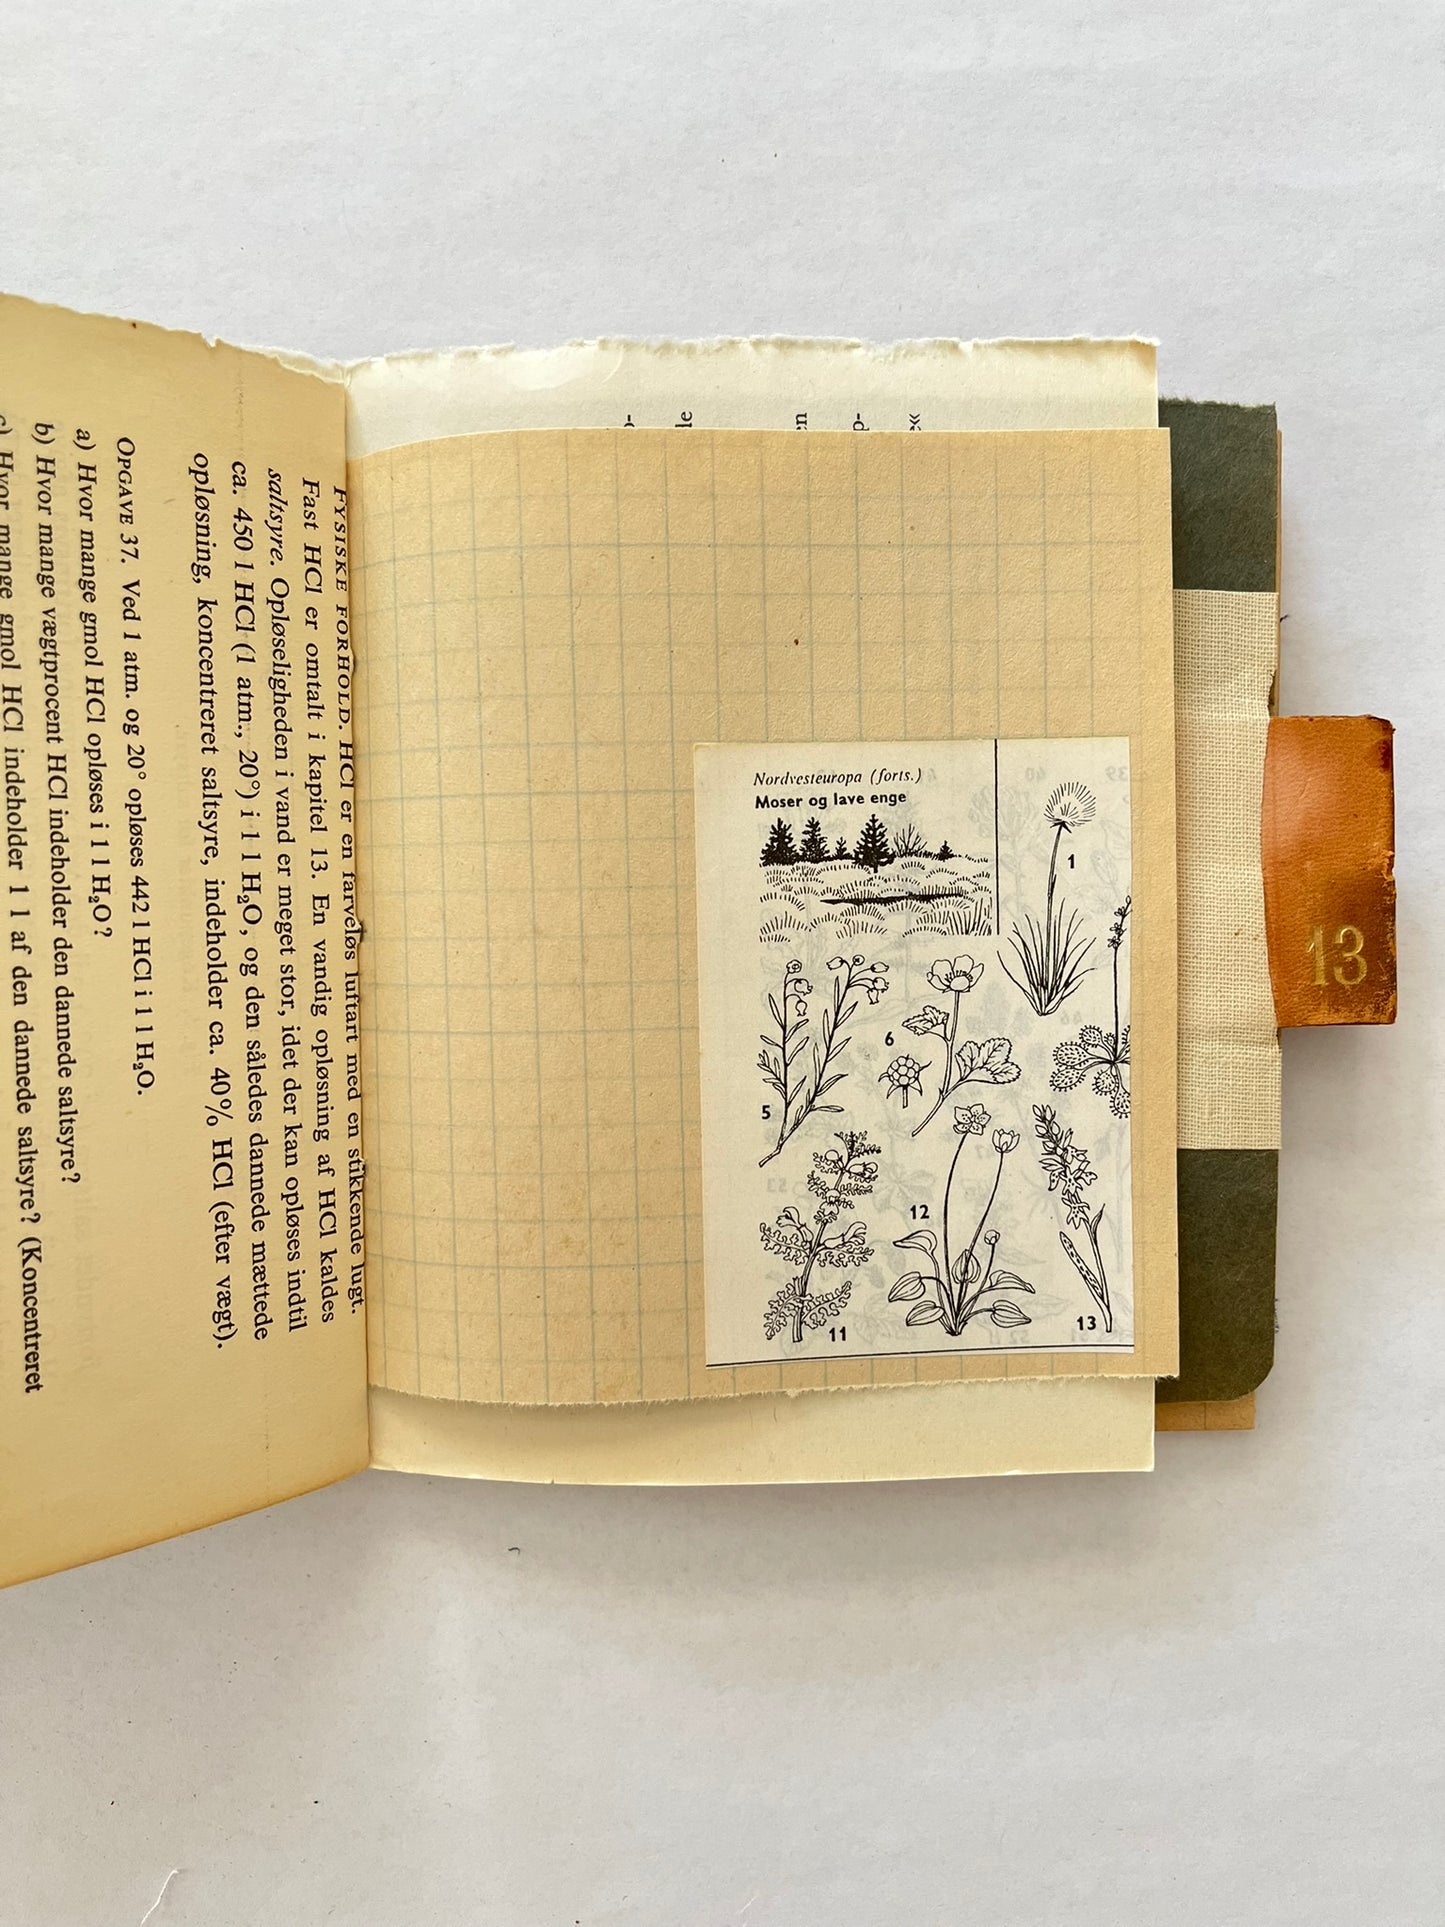 FYSISKE FORHOLD. HCl er en farveløs luftart med en stikkende lugt.
Fast HCl er omtalt i kapitel 13. En vandig opløsning af HCl kaldes
saltsyre. Opløseligheden i vand er meget stor, idet der kan opløses indtil
ca. 450 l HCl (1 atm., 20°) i 1 l H₂O, og den således dannede mættede
opløsning, koncentreret saltsyre, indeholder ca. 40% HCl (efter vægt).
OPGAVE 37. Ved 1 atm. og 20° opløses 442 l HCl i 1 l H₂O.
a) Hvor mange gmol HCl opløses i 1 l H₂O?
b) Hvor mange vægtprocent HCl indeholder den dannede saltsyre?
c) Hvor mange gmol HCl indeholder 1 l af den dannede saltsyre? (Koncentreret
Nordvesteuropa (forts.)
Moser og lave enge
1
5
6
11
12
13
13